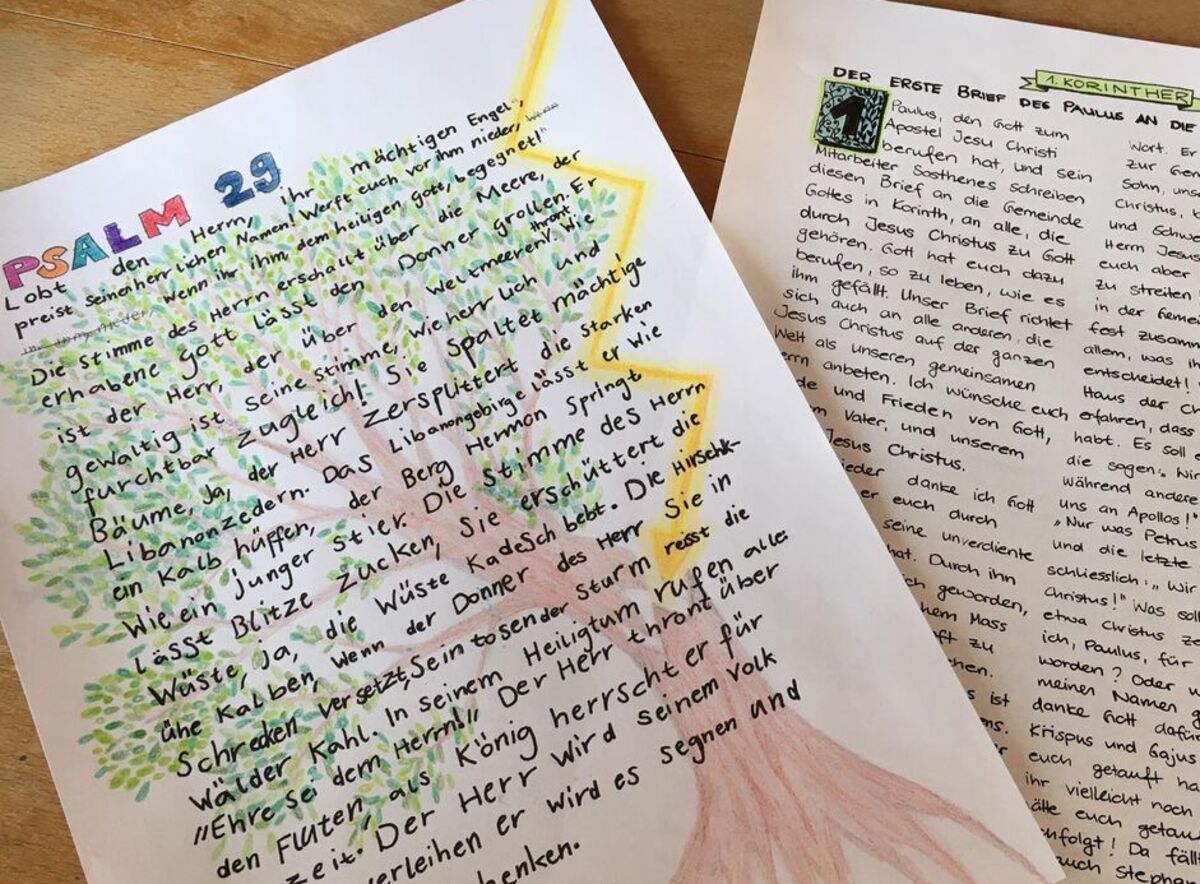 PSALM 29
Lobt den Herrn, ihr mächtigen Engel,
preist seinen herrlichen Namen! Werft euch vor ihm nieder,
wenn ihr ihm, dem heiligen Gott, begegnet!
Die Stimme des Herrn erschallt über die Meere, der
erhabene Gott lässt den Donner grollen. Er
ist der Herr, der über den Weltmeeren thront. Wie
gewaltig ist seine Stimme, wie herrlich und
furchtbar zugleich! Sie spaltet mächtige
Bäume, Ja, der Herr zersplittert die starken
Libanonzedern. Das Libanongebirge lässt er wie
ein Kalb hüpfen, der Berg Hermon Springt
Wie ein junger stier. Die Stimme des Herrn
lässt Blitze zucken, Sie erschüttert die
Wüste, ja, die Wüste Kadesch bebt. Die Hirschk-
ühe Kalben, wenn der Donner des Herr Sie in
Schrecken versetzt, Sein tosender Sturm reisst die
Wälder Kahl. In seinem Heiligtum rufen alle:
"Ehre sei dem Herrn!" Der Herr thront über
den Fluten, als König herrscht er für
zeit. Der Herr wird seinem Volk
verleihen er wird es segnen und
1. KORINTHER
DER ERSTE BRIEF DES PAULUS AN DIE
1
Paulus, den Gott zum
Apostel Jesu Christi
berufen hat, und sein
Mitarbeiter Sosthenes schreiben
diesen Brief an die Gemeinde
Gottes in Korinth, an alle, die
durch Jesus Christus zu Gott
gehören. Gott hat euch dazu
berufen, so zu leben, wie es
ihm gefällt. Unser Brief richtet
sich auch an alle anderen, die
Jesus Christus auf der ganzen
Welt als unseren gemeinsamen
anbeten. Ich wünsche euch
und Frieden von Gott,
Vater, und unserem
Jesus Christus.
danke ich Gott
euch durch
seine unverdiente
Durch ihn
geworden,
Mass
zu
ist
Wort. Er
zur
Sohn,
Christus,
und
Herrn Jesus
euch aber
zu streiten
in der
fest
allem, was
entscheidet!
Haus der
erfahren, dass
habt. Es soll
die sagen: "Wir
während andere
uns an Apollos!"
"Nur was Petrus
und die letzte
schliesslich: "Wir
Christus!" Was
etwa Christus
ich, Paulus, für
worden? Oder
meinen Namen
danke Gott
Krispus und Gajus
euch getauft
ihr vielleicht noch
euch
Da
auch